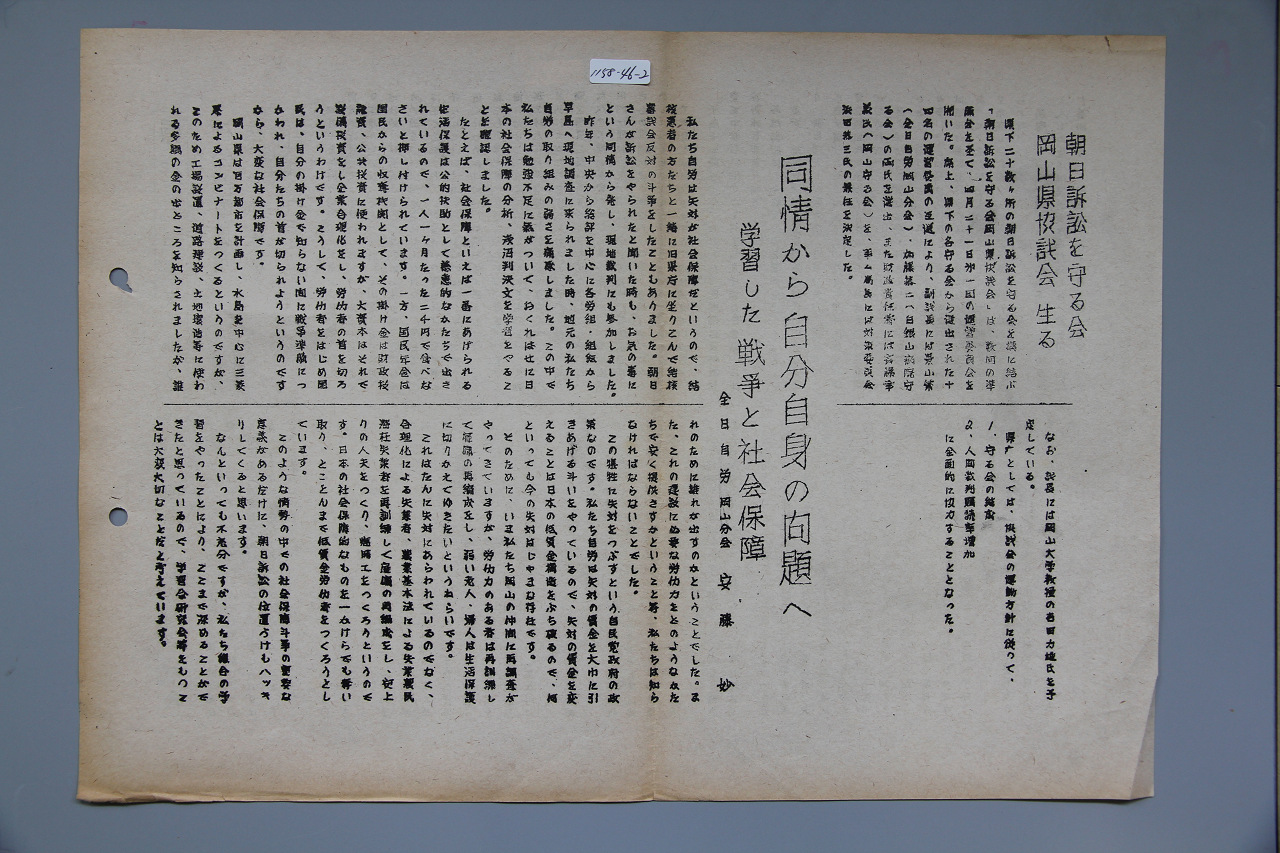 1158-46-2
朝日訴訟を守る会
岡山県協議会 生る
県下二十数ヶ所の朝日訴訟を守る会を横に結ぶ
「朝日訴訟を守る会岡山県協議会」は、数回の準
備会を経て、四月二十一日第一回の運営委員会を
開いた。席上、県下の各守る会から選出された十
四名の運営委員の互選により、副議長には
（全日自労岡山分会）、加藤
る会）の両氏を選出、また財政責任者には
氏（岡山守る会）を、事ム局長には対策委員会
氏の兼任を決定した。
なお、議長には岡山大学教授の
定している。
県庁としては、協議会の運動方針に従って、
1、守る会の結成
2、人間裁判購読者増加
に全面的に協力することとなった。
同情から自分自身の向題へ
学習した戦争と社会保障
全日自労岡山分会 安藤 妙
私たち自労は失対が社会保障だというので、結
核患者の方たちと一緒に旧県庁に坐りこんで結核
審議会反対の斗争をしたこともありました。朝日
さんが訴訟をやられたと聞いた時も、お気の毒に
という同情から発し、現地裁判にも参加しました。
昨年、中央から総評を中心に各労組・組織から
早島へ現地調査に来られました時、地元の私たち
自労の取り組みの弱さを痛感しました。この中で
私たちは勉強不足に気がついて、おくればせに日
本の社会保障の分析、浅沼判決文を学習をやるこ
とを確認しました。
たとえば、社会保障といえば一番にあげられる
生活保護は公的扶助として慈恵的なかたちで出さ
れているので、一人一ヶ月たった二千円で食べな
さいと押し付けられています。一方、国民年金は
国民からの収奪機関として、その掛け金は財政投
融資、公共投資に使われますが、大資本はそれで
設備投資をし企業合理化をし、労仂者の首を切ろ
うというわけです。こうして、労仂者をはじめ国
民は、自分の掛け金で知らない間に戦争準備につ
かわれ、自分たちの首が切られようというのです
から、大変な社会保障です。
岡山県は百万都市を計画し、水島を中心に三菱
系によるコンビナートをつくるというのですが、
このため工場設置、道路建設、土地造成等に使わ
れる多額の金の出どころを知らされましたが、誰
れのために誰れが出すのかということでした。ま
た、これの建設に必要な労仂力をどのようなかた
ちで安く提供さすかということ等、私たちは知ら
なければならないことでした。
この犠牲に失対をつぶすという自民党政府の政
策なのです。私たち自労は失対の賃金を大巾に引
きあげる斗いをやっているので、失対の賃金を変
えることは日本の低賃金構造をぶち破るので、何
といっても今の失対はじゃまな存在です。
そのために、いま私たち岡山の仲間に再調査が
やってきていますが、労仂力のある者は再訓練し
て組織の再編成をし、弱い老人、婦人は生活保護
に切りかえてゆきたいというねらいです。
これはたんに失対にあらわれているのでなく、
合理化による失業者、農業基本法による失業農民
潜在失業者を再訓練して産業の再編成をし、安上
りの人夫をつくり、臨時工をつくろうというので
す。日本の社会保障的なものを一かけらでも奪い
取り、とことんまで低賃金労仂者をつくろうとし
ています。
このような情勢の中での社会保障斗争の重要な
意義があるだけに、朝日訴訟の位置づけもハッキ
リしてくると思います。
なんといっても不充分ですが、私たち組合の学
習をやったことにより、ここまで深めることがで
きたと思っているので、学習会研究会等をもつこ
とは大変大切なことだと考えています。